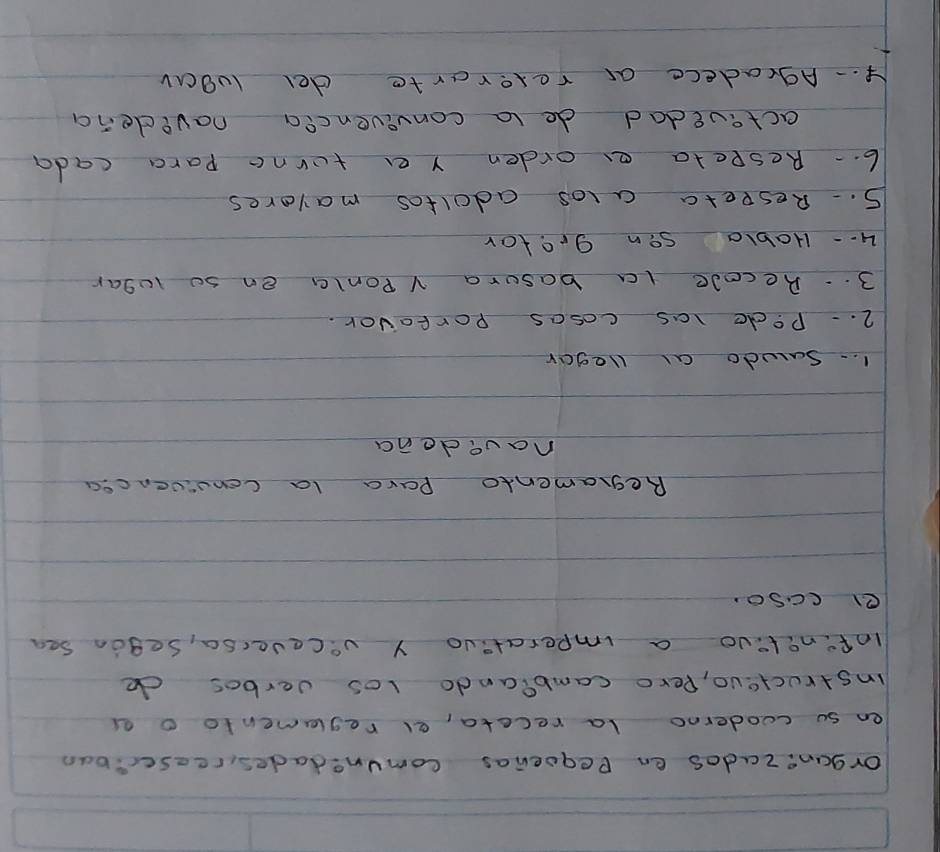 Organizados en Pequeñas comunidades, reascriban
en su cuaderno la receta, el reglamento o el
instructivo, Pero cambiando los verbos de
Infinitivo a imperativo y viceversa, según sea
el caso.
Reglamento Para la convivencia
navideña
1.- Saludo al llegar
2.- Pide las cosas Porfavor.
3.- Recoje la basura y Ponla en su lugar
4.- Habla sin gritar
5.- Respeta a los adultos mayores
6.- Respeta el orden y el turno Para cada
actividad de la convivencia navideña
7.- Agradece al retirarte del lugar